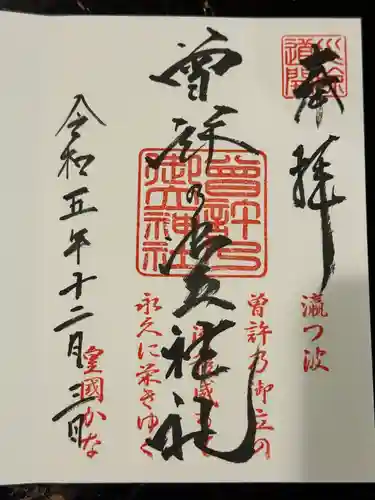 奉拝
瀛つ波
曾許乃御立の
曾許乃御立神社
曾許乃御立神社
永久に栄きゆく
皇國かな
令和五年十二月三日